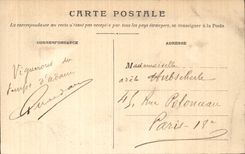 CARTE POSTALE
La correspondance au recto n'est pas acceptée par tous les pays étrangers, se renseigner à la Poste
CORRESPONDANCE
ADRESSE
Vignerons du
temps d'adam
Mademoiselle
45, Rue Polonceau
Paris 18e